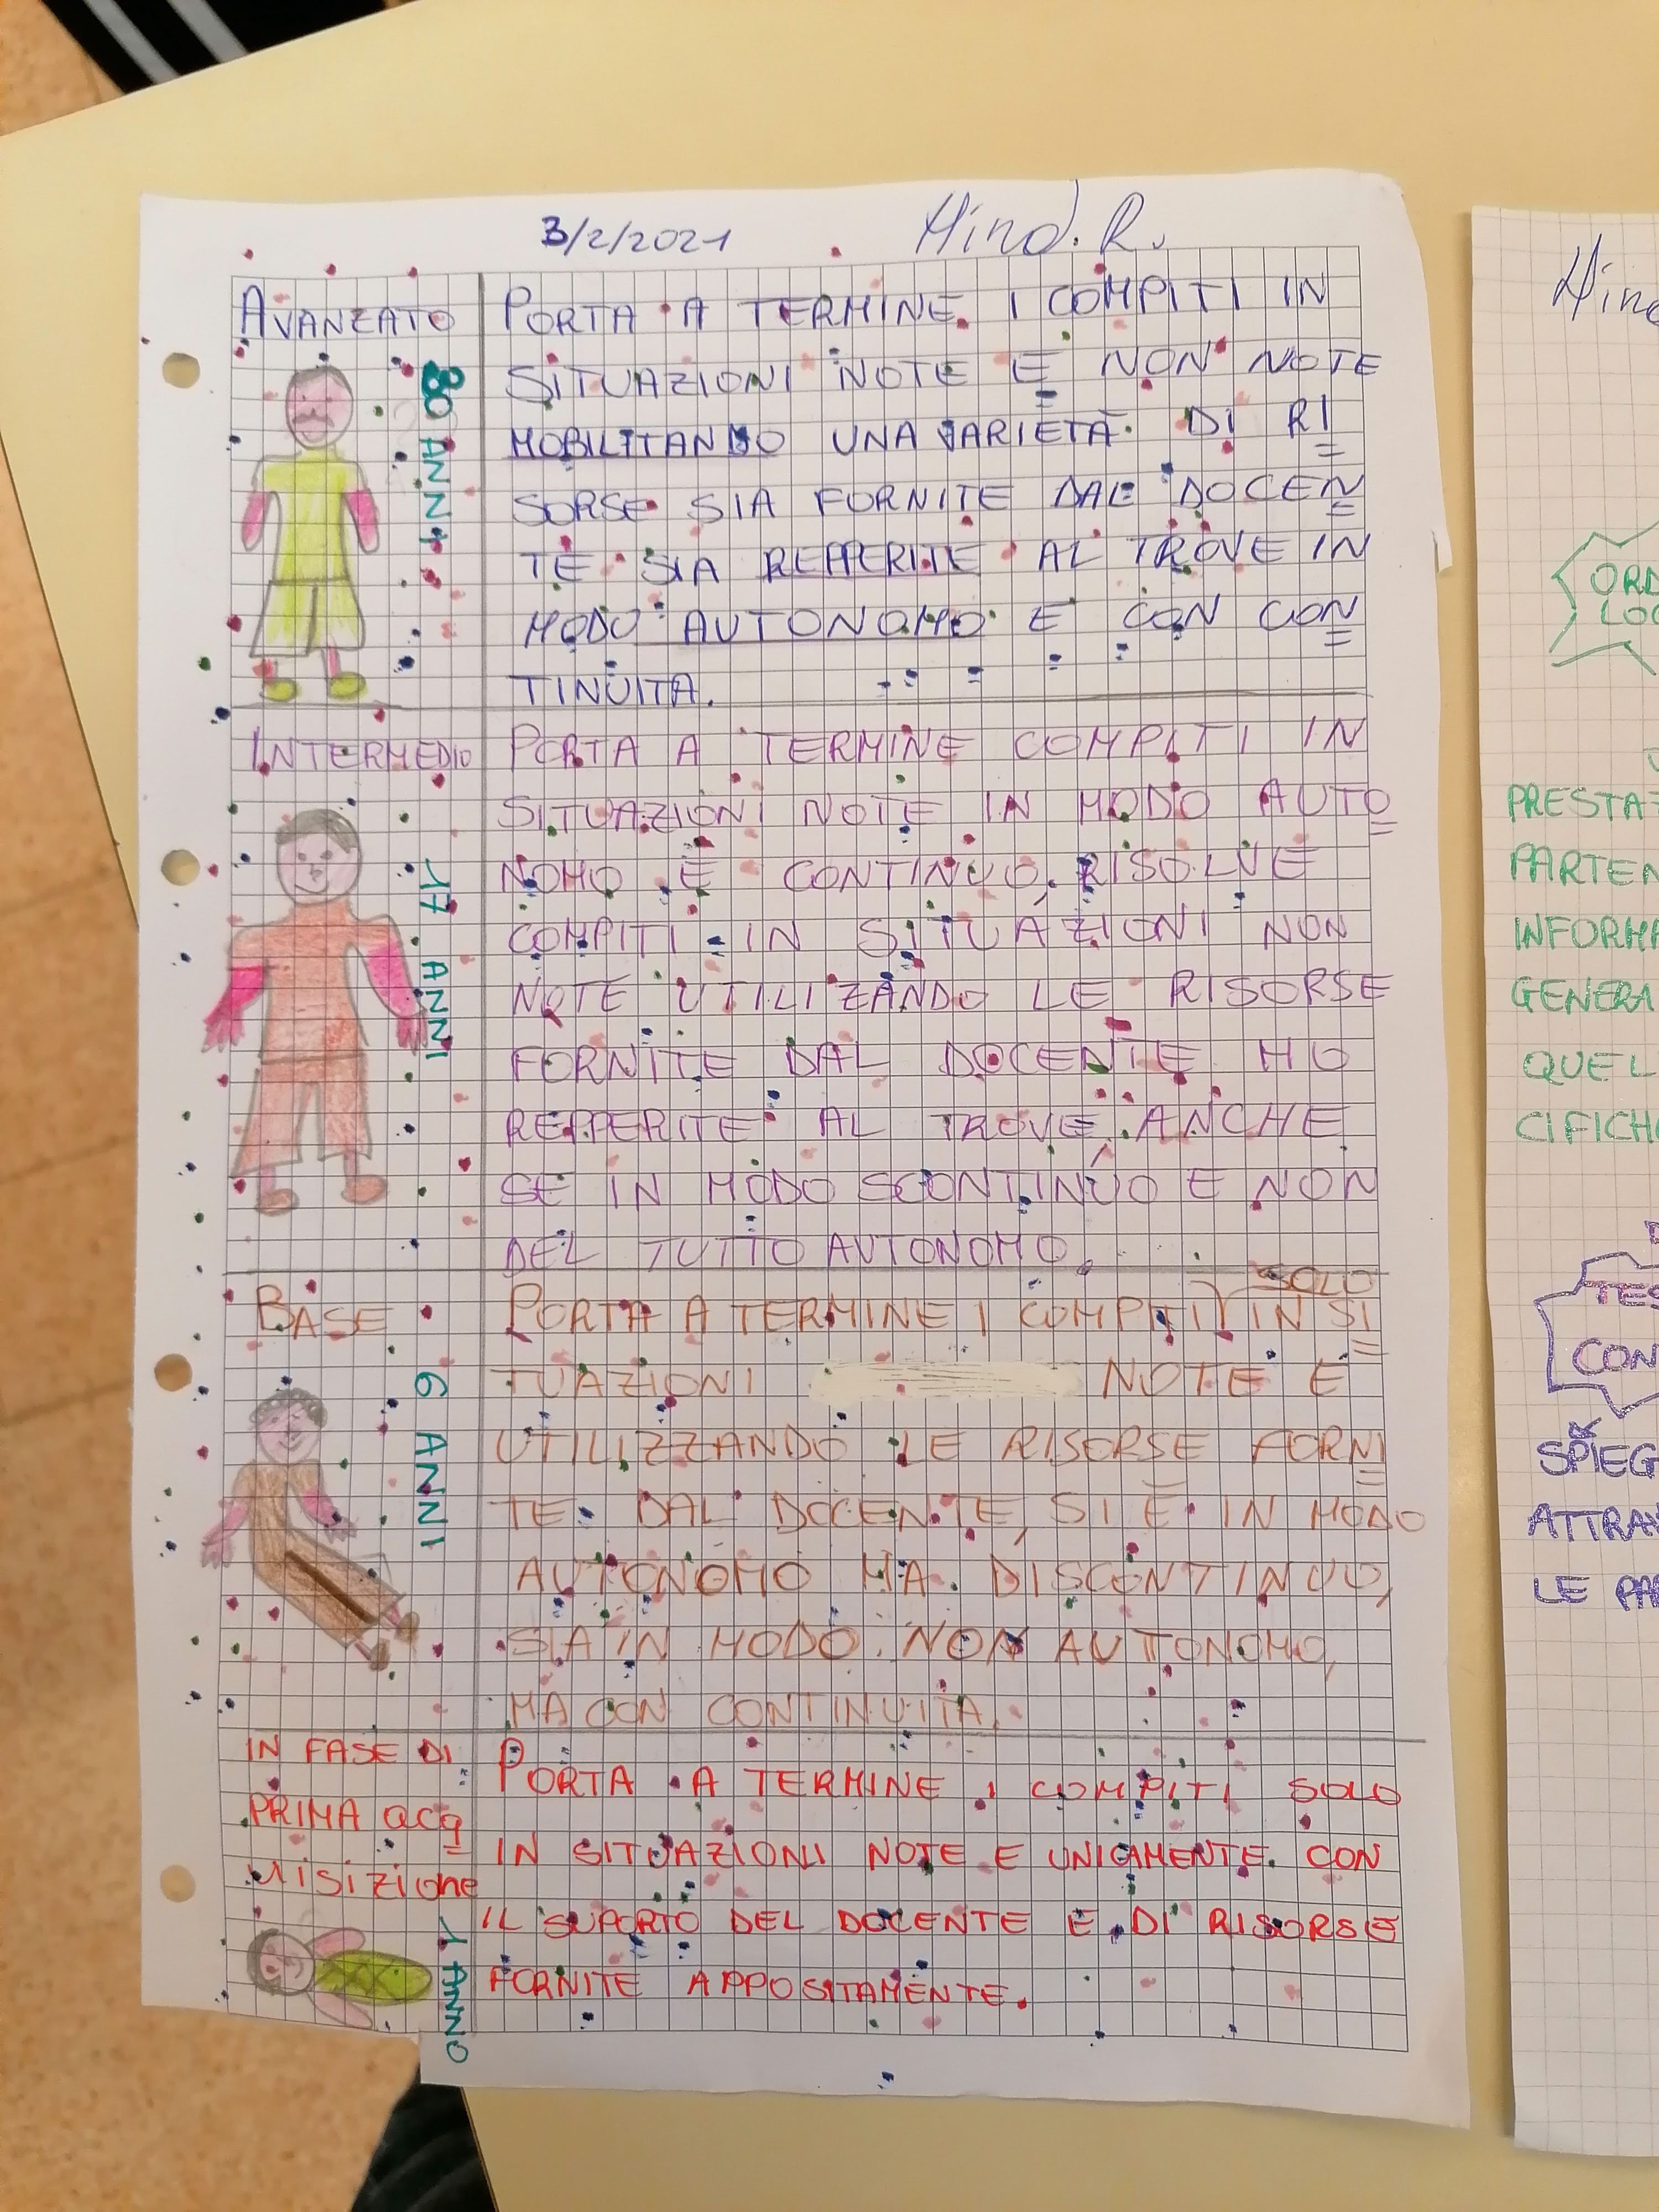 3/2/2021 Hind. R.
AVANZATO
80 ANNI
PORTA A TERMINE I COMPITI IN
SITUAZIONI NOTE E NON NOTE
MOBILITANDO UNA VARIETÀ DI RI
SORSE SIA FORNITE DAL DOCEN
TE SIA REPPERITE AL TROVE IN
MODO AUTONOMO E CON CON
TINUITA.
INTERMEDIO
17 ANNI
PORTA A TERMINE COMPITI IN
SITUAZIONI NOTE IN MODO AUTO
NOMO E CONTINUO, RISOLVE
COMPITI IN SITUAZIONI NON
NOTE UTILIZANDO LE RISORSE
FORNITE DAL DOCENTE HO
REPPERITE AL TROVE, ANCHE
SE IN MODO SCONTINUO E NON
DEL TUTTO AUTONOMO.
BASE
6 ANNI
SOLO
PORTA A TERMINE I COMPITI IN SI
TUAZIONI NOTE E
UTILIZZANDO LE RISORSE FORNI
TE DAL DOCENTE, SI E IN MODO
AUTONOMO MA DISCONTINUO,
SIA IN MODO NON AUTONOMO,
MA CON CONTINUITA.
IN FASE DI
PRIMA acq
uisizione
1 ANNO
PORTA A TERMINE I COMPITI SOLO
IN SITUAZIONI NOTE E UNICAMENTE CON
IL SUPORTO DEL DOCENTE E DI RISORSE
FORNITE APPOSITAMENTE.
PARTEN
INFORMA
GENERA
QUEL
CIFICH
CON
SPIEG
ATTRAV
LE PAR